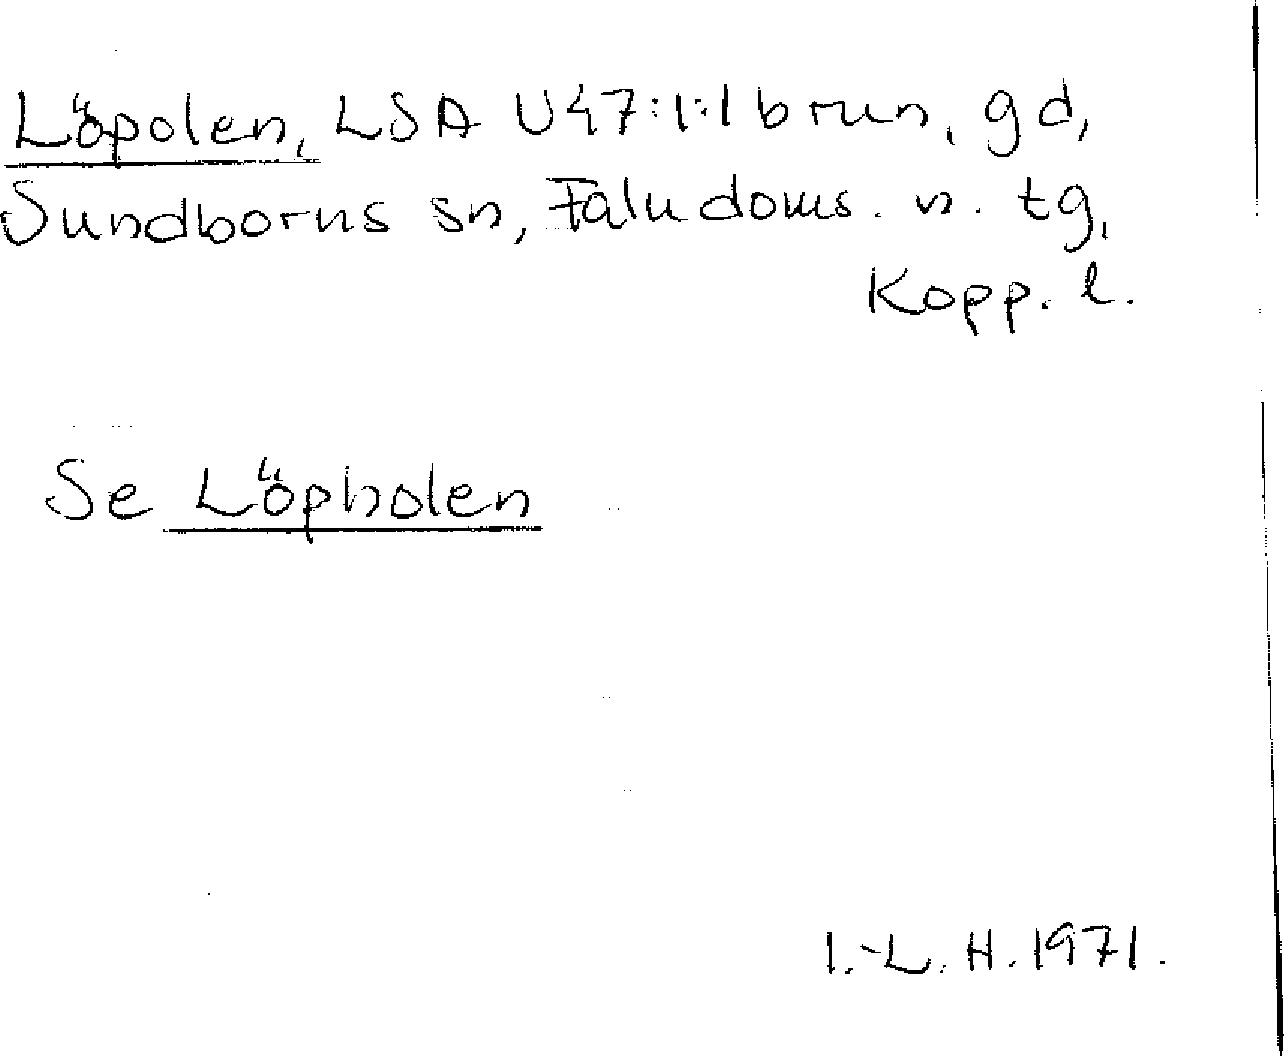 Löpolen, LSA U47:1:1 brun, gd,
Sundborns sn, Falu doms. n. tg,
Kopp. l.
Se Löpholen
I.-L. H. 1971.